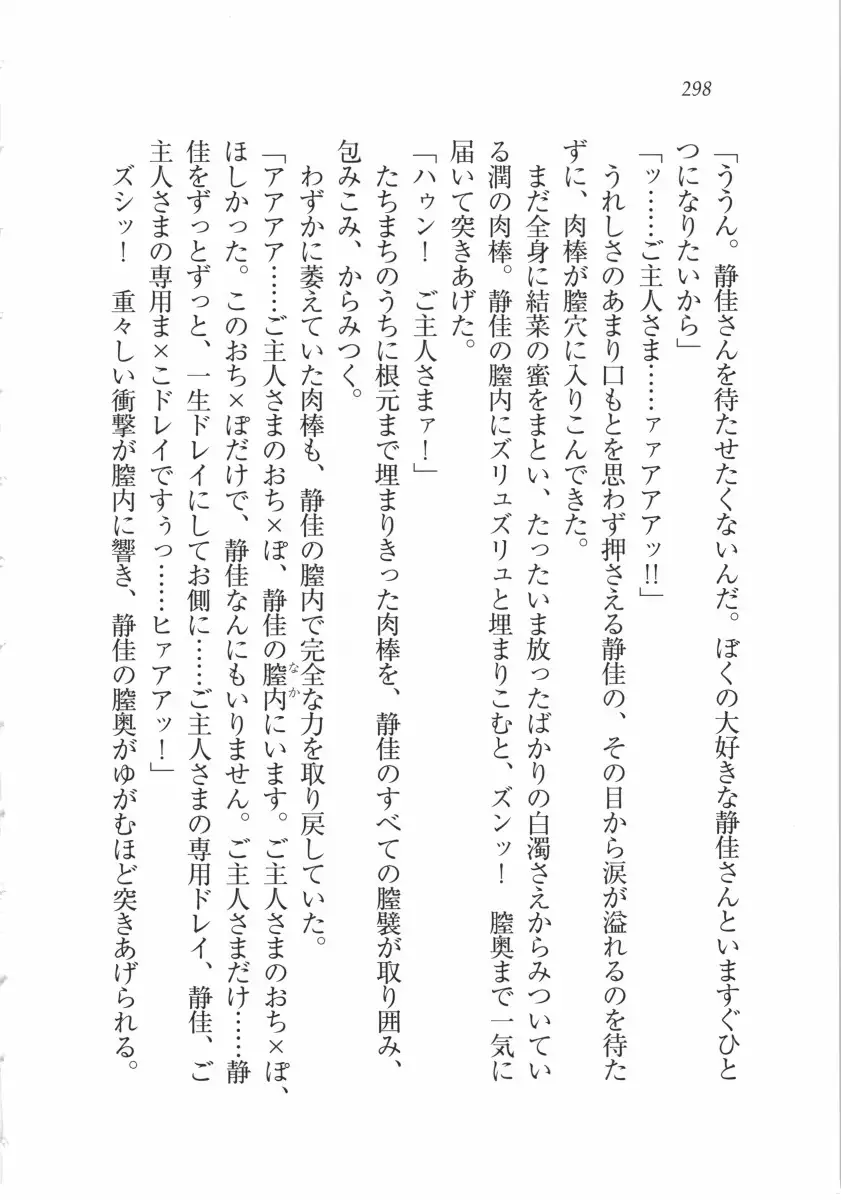 298
「ううん。静佳さんを待たせたくないんだ。ぼくの大好きな静佳さんといますぐひと
つになりたいから」
「ッ……ご主人さま……ァァアアアッ!!」
うれしさのあまり口もとを思わず押さえる静佳の、その目から涙が溢れるのを待た
ずに、肉棒が膣穴に入りこんできた。
まだ全身に結菜の蜜をまとい、たったいま放ったばかりの白濁さえからみついてい
る潤の肉棒。静佳の膣内にズリュズリュと埋まりこむと、ズンッ！　膣奥まで一気に
届いて突きあげた。
「ハゥン！　ご主人さまァ！」
たちまちのうちに根元まで埋まりきった肉棒を、静佳のすべての膣襞が取り囲み、
包みこみ、からみつく。
わずかに萎えていた肉棒も、静佳の膣内で完全な力を取り戻していた。
「アアアア……ご主人さまのおち×ぽ、静佳の膣内なかにいます。ご主人さまのおち×ぽ、
ほしかった。このおち×ぽだけで、静佳なんにもいりません。ご主人さまだけ……静
佳をずっとずっと、一生ドレイにしてお側に……ご主人さまの専用ドレイ、静佳、ご
主人さまの専用ま×こドレイですぅっ……ヒァアアッ！」
ズシッ！　重々しい衝撃が膣内に響き、静佳の膣奥がゆがむほど突きあげられる。